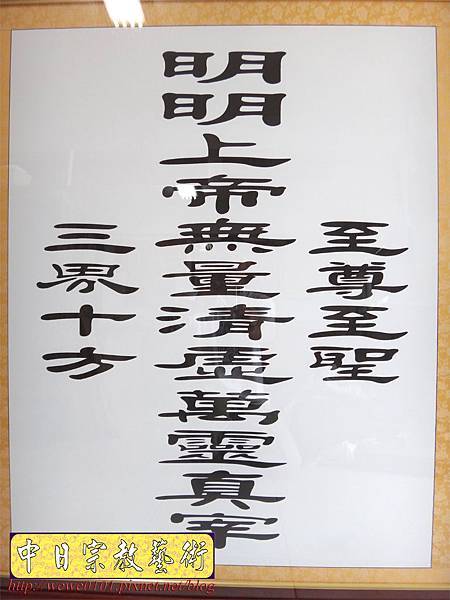 至尊至聖
明明上帝無量清虛萬靈真宰
三界十方
中日宗教藝術
http://wewe0101.pixnet.net/blog